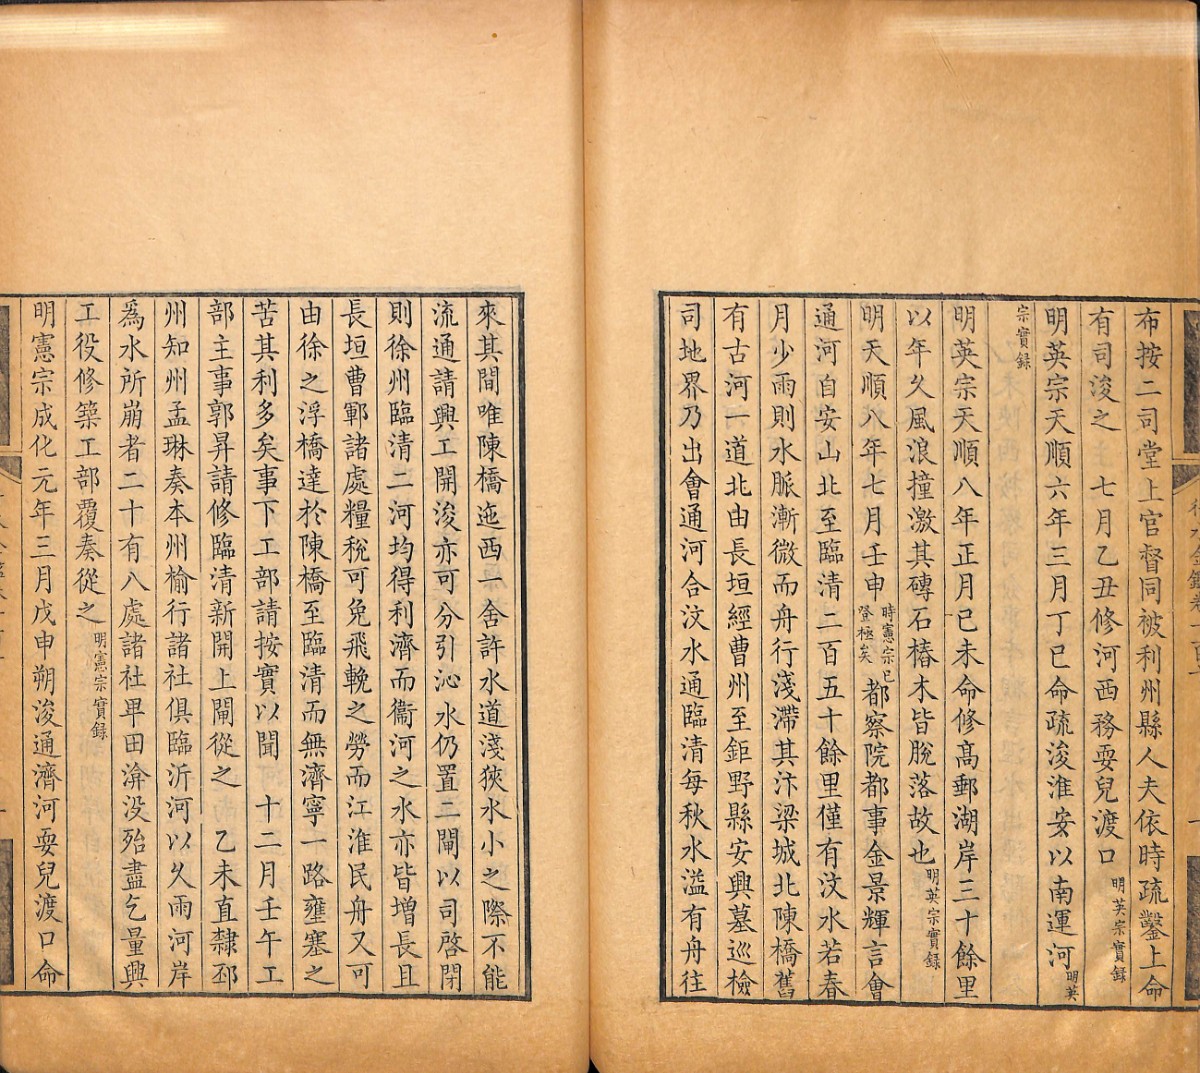 布按二司堂上官督同被利州縣人夫依時疏鑿上命
有司浚之　七月乙丑修河西務耍兒渡口明英宗實錄
明英宗天順六年三月丁巳命疏浚淮安以南運河明英
宗實錄
明英宗天順八年正月己未命修高郵湖岸三十餘里
以年久風浪撞激其磚石樁木皆脫落故也明英宗實錄
明天順八年七月壬申時憲宗已登極矣都察院都事金景輝言會
通河自安山北至臨清二百五十餘里僅有汶水若春
月少雨則水脈漸微而舟行淺滯其汴梁城北陳橋舊
有古河一道北由長垣經曹州至鉅野縣安興墓巡檢
司地界乃出會通河合汶水通臨清每秋水溢有舟往
來其間唯陳橋迤西一舍許水道淺狹水小之際不能
流通請興工開浚亦可分引沁水仍置二閘以司啓閉
則徐州臨清二河均得利濟而衞河之水亦皆增長且
長垣曹鄆諸處糧稅可免飛輓之勞而江淮民舟又可
由徐之浮橋達於陳橋至臨清而無濟寧一路壅塞之
苦其利多矣事下工部請按實以聞　十二月壬午工
部主事郭昇請修臨清新開上閘從之　乙未直隸邳
州知州孟琳奏本州榆行諸社俱臨沂河以久雨河岸
爲水所崩者二十有八處諸社旱田渰没殆盡乞量興
工役修築工部覆奏從之明憲宗實錄
明憲宗成化元年三月戊申朔浚通濟河耍兒渡口命